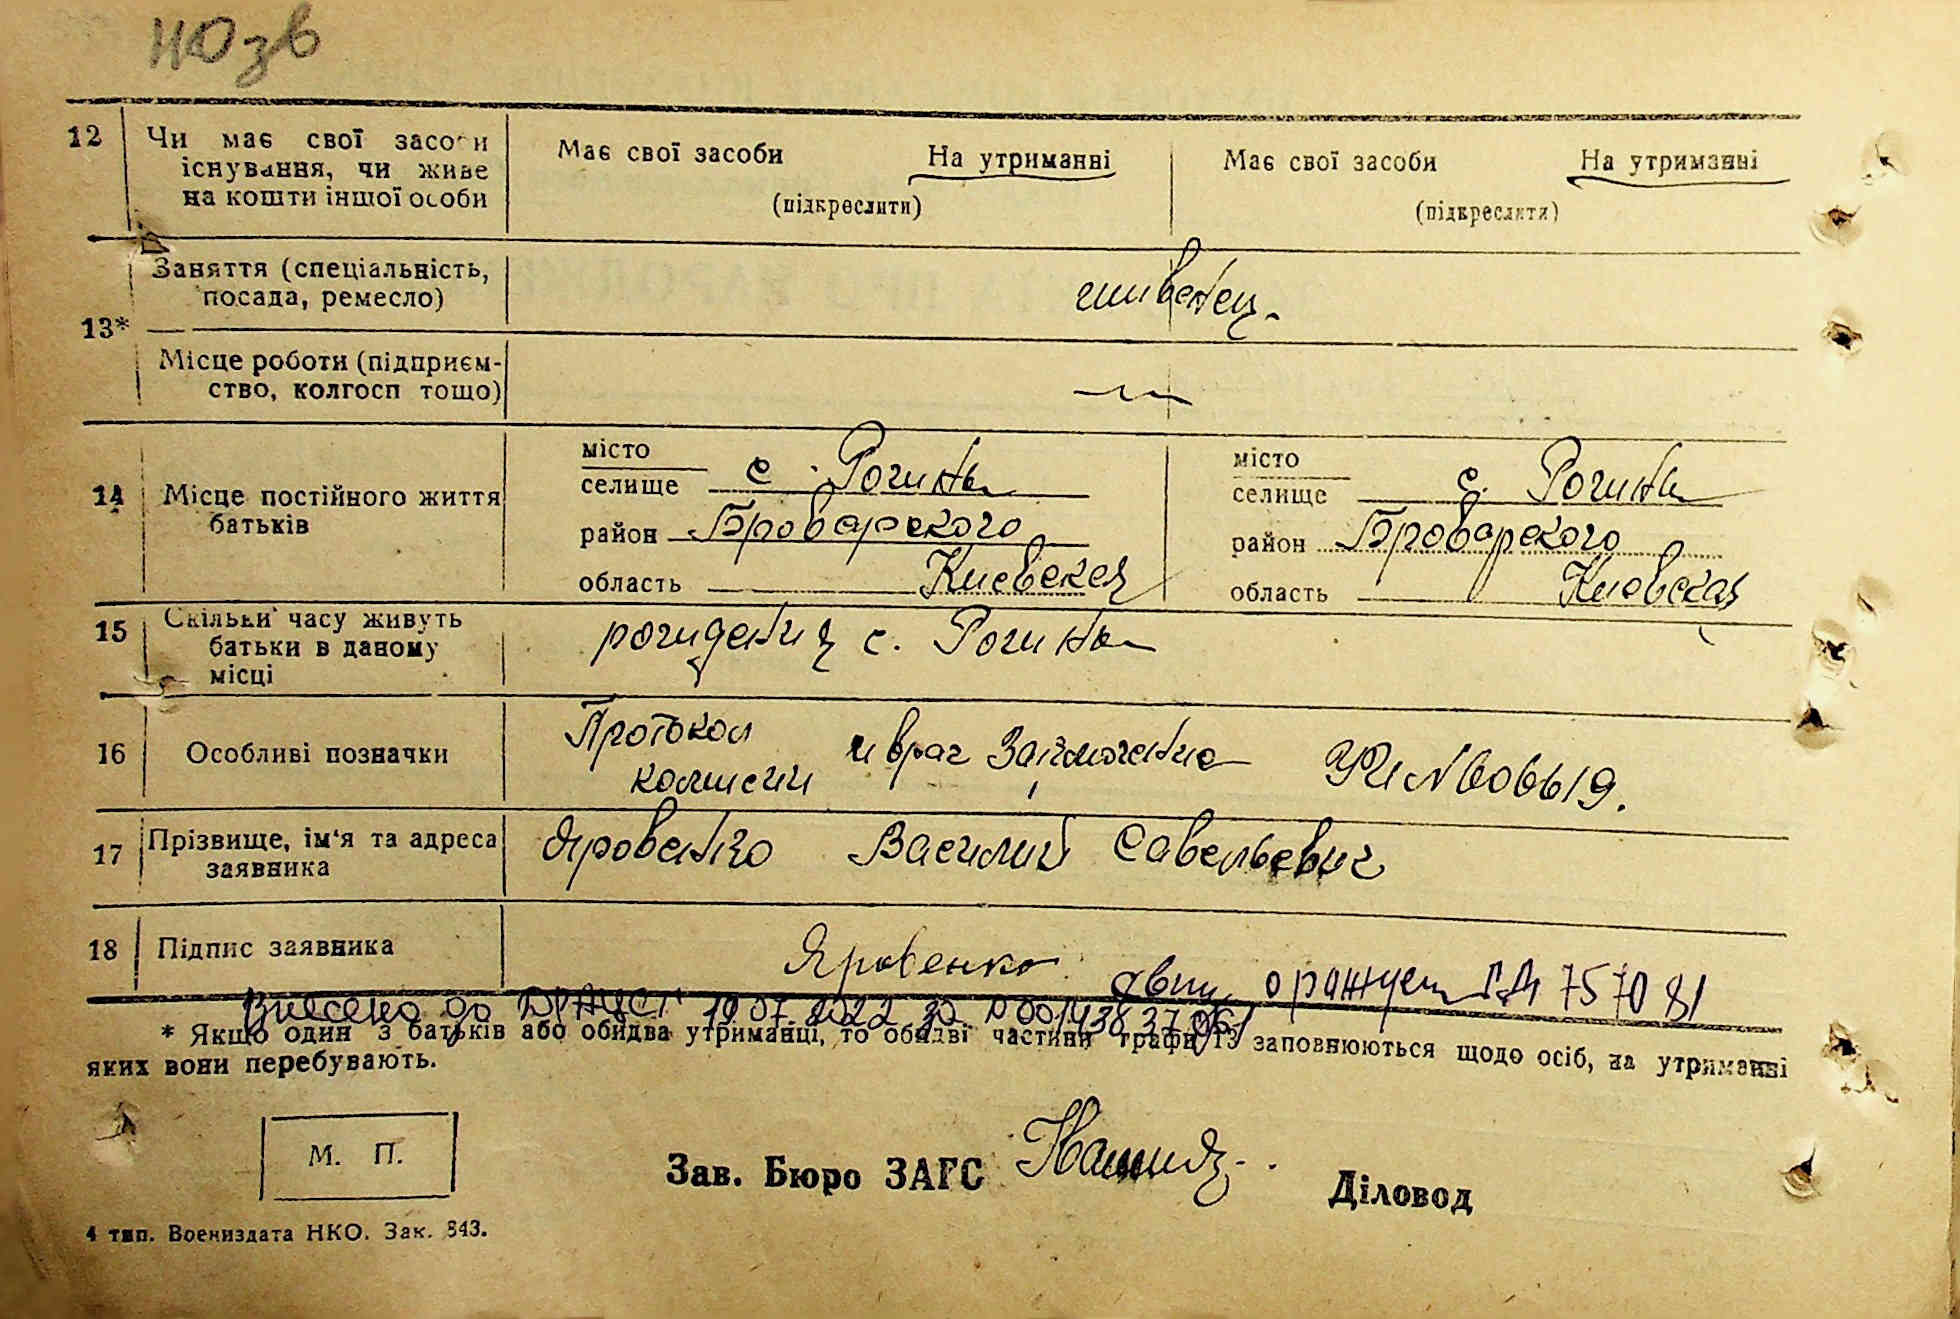 12 Чи має свої засоби Має свої засоби На утриманні Має свої засоби На утриманні
існування, чи живе
на кошти іншої особи (підкреслити) (підкреслити)
Заняття (спеціальність,
посада, ремесло)
13*
Місце роботи (підприєм-
ство, колгосп тощо)
місто місто
селище с. Рожны селище с. Рожны
14 Місце постійного життя
батьків
район Броварского район Броварского
область Киевская область Киевская
15 Скільки часу живуть
батьки в даному рождения с. Рожны
місці
16 Особливі позначки Протокол и врач
комисии
17 Прізвище, ім'я та адреса Яровенко Василий Савельевич
заявника
18 Підпис заявника Яровенко
757081
Внесено до ДРАЦСГ 19.07.2022
* Якщо один з батьків або обидва утриманці, то обидві частини графи 13 заповнюються щодо осіб, на утриманні
яких вони перебувають.
М. П.
Зав. Бюро ЗАГС Діловод
4 тип. Воениздата НКО. Зак. 843.